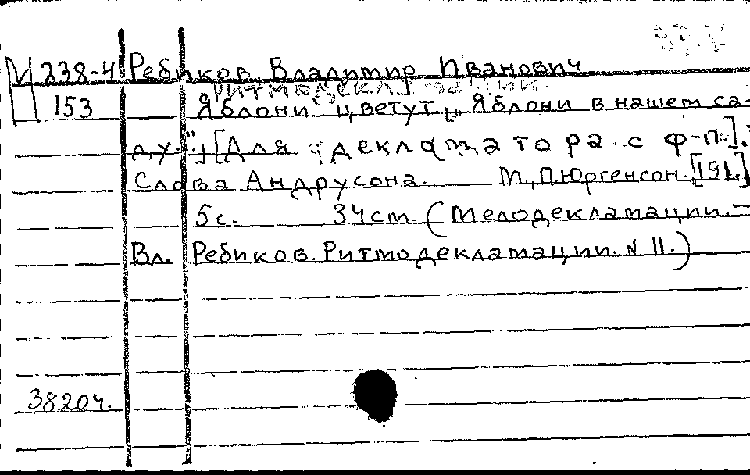 М 238-4 Ребиков Владимир Иванович
Ритмодекламации.
153 Яблони цветут „Яблони в нашем са-
ду..." [Для декламатора с ф-п.].
Слова Андрусона. М., П. Юргенсон. [191.]
5с. 34см. (Мелодекламации. =
Вл. Ребиков. Ритмодекламации. № 11.)
3820ч.